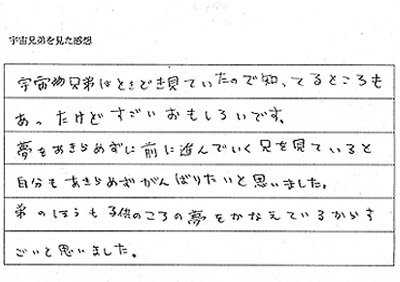 宇宙兄弟を見た感想
宇宙兄弟はときどき見ていたので知ってるところも
あったけどすごいおもしろいです。
夢をあきらめずに前に進んでいく兄を見ていると
自分もあきらめずがんばりたいと思いました。
弟のほうも子供のころの夢をかなえているからす
ごいと思いました。